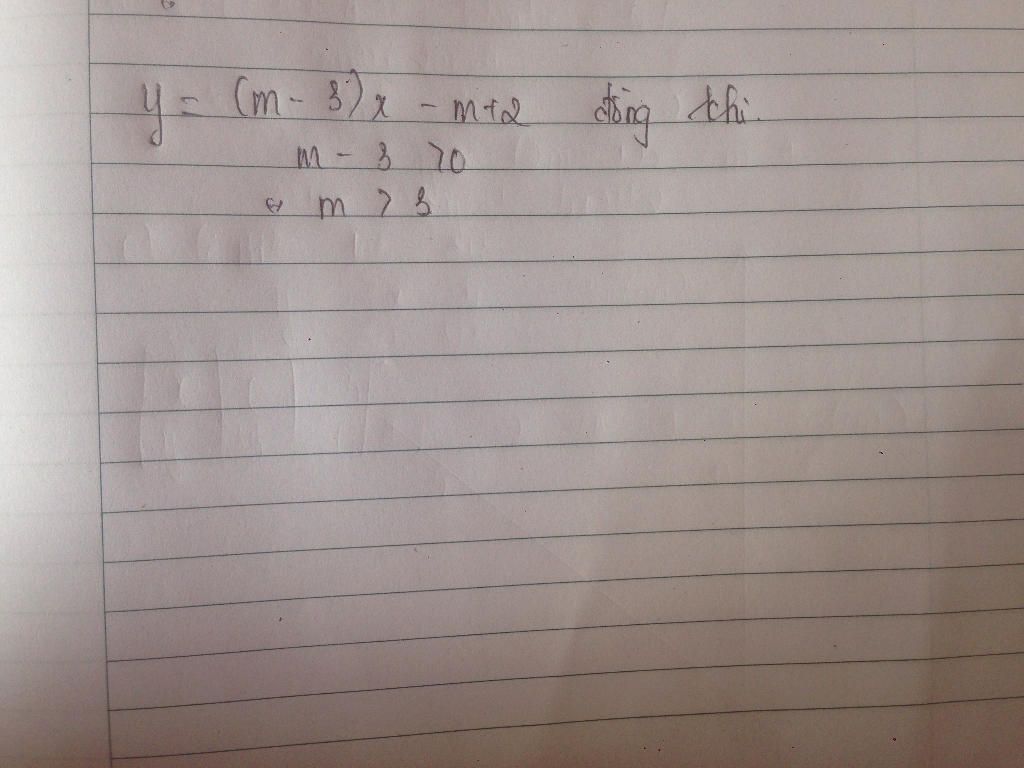 y = (m - 3)x - m+2 đồng khi.
m - 3 >0
⇔ m > 3